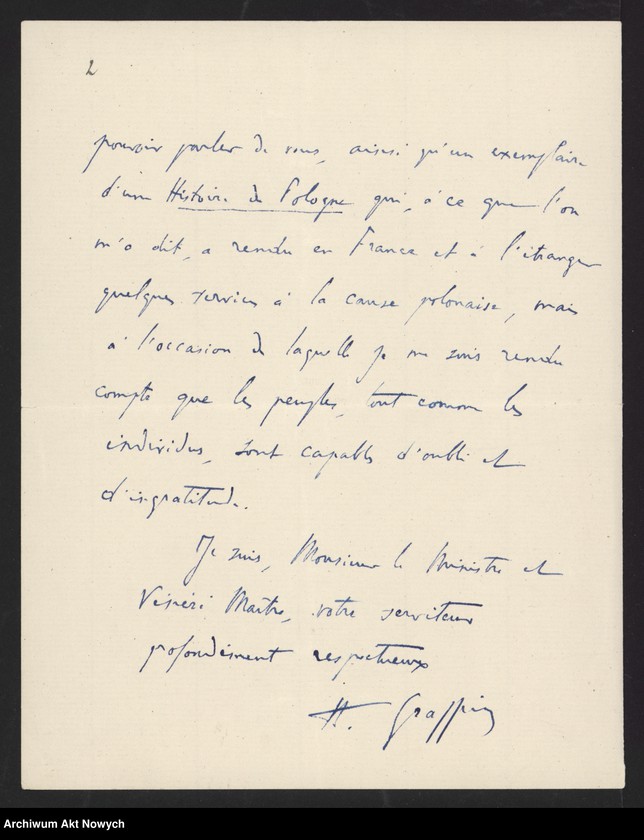 2
pouvoir parler de vous, ainsi qu'un exemplaire
d'une Histoire de Pologne qui, à ce que l'on
m'a dit, a rendu en France et à l'étranger
quelques services à la cause polonaise, mais
à l'occasion de laquelle je me suis rendu
compte que les peuples, tout comme les
individus, sont capables d'oubli et
d'ingratitude.
Je suis, Monsieur le Ministre et
Vénéré Maître, votre serviteur
profondément respectueux
H. Grappin
Archiwum Akt Nowych